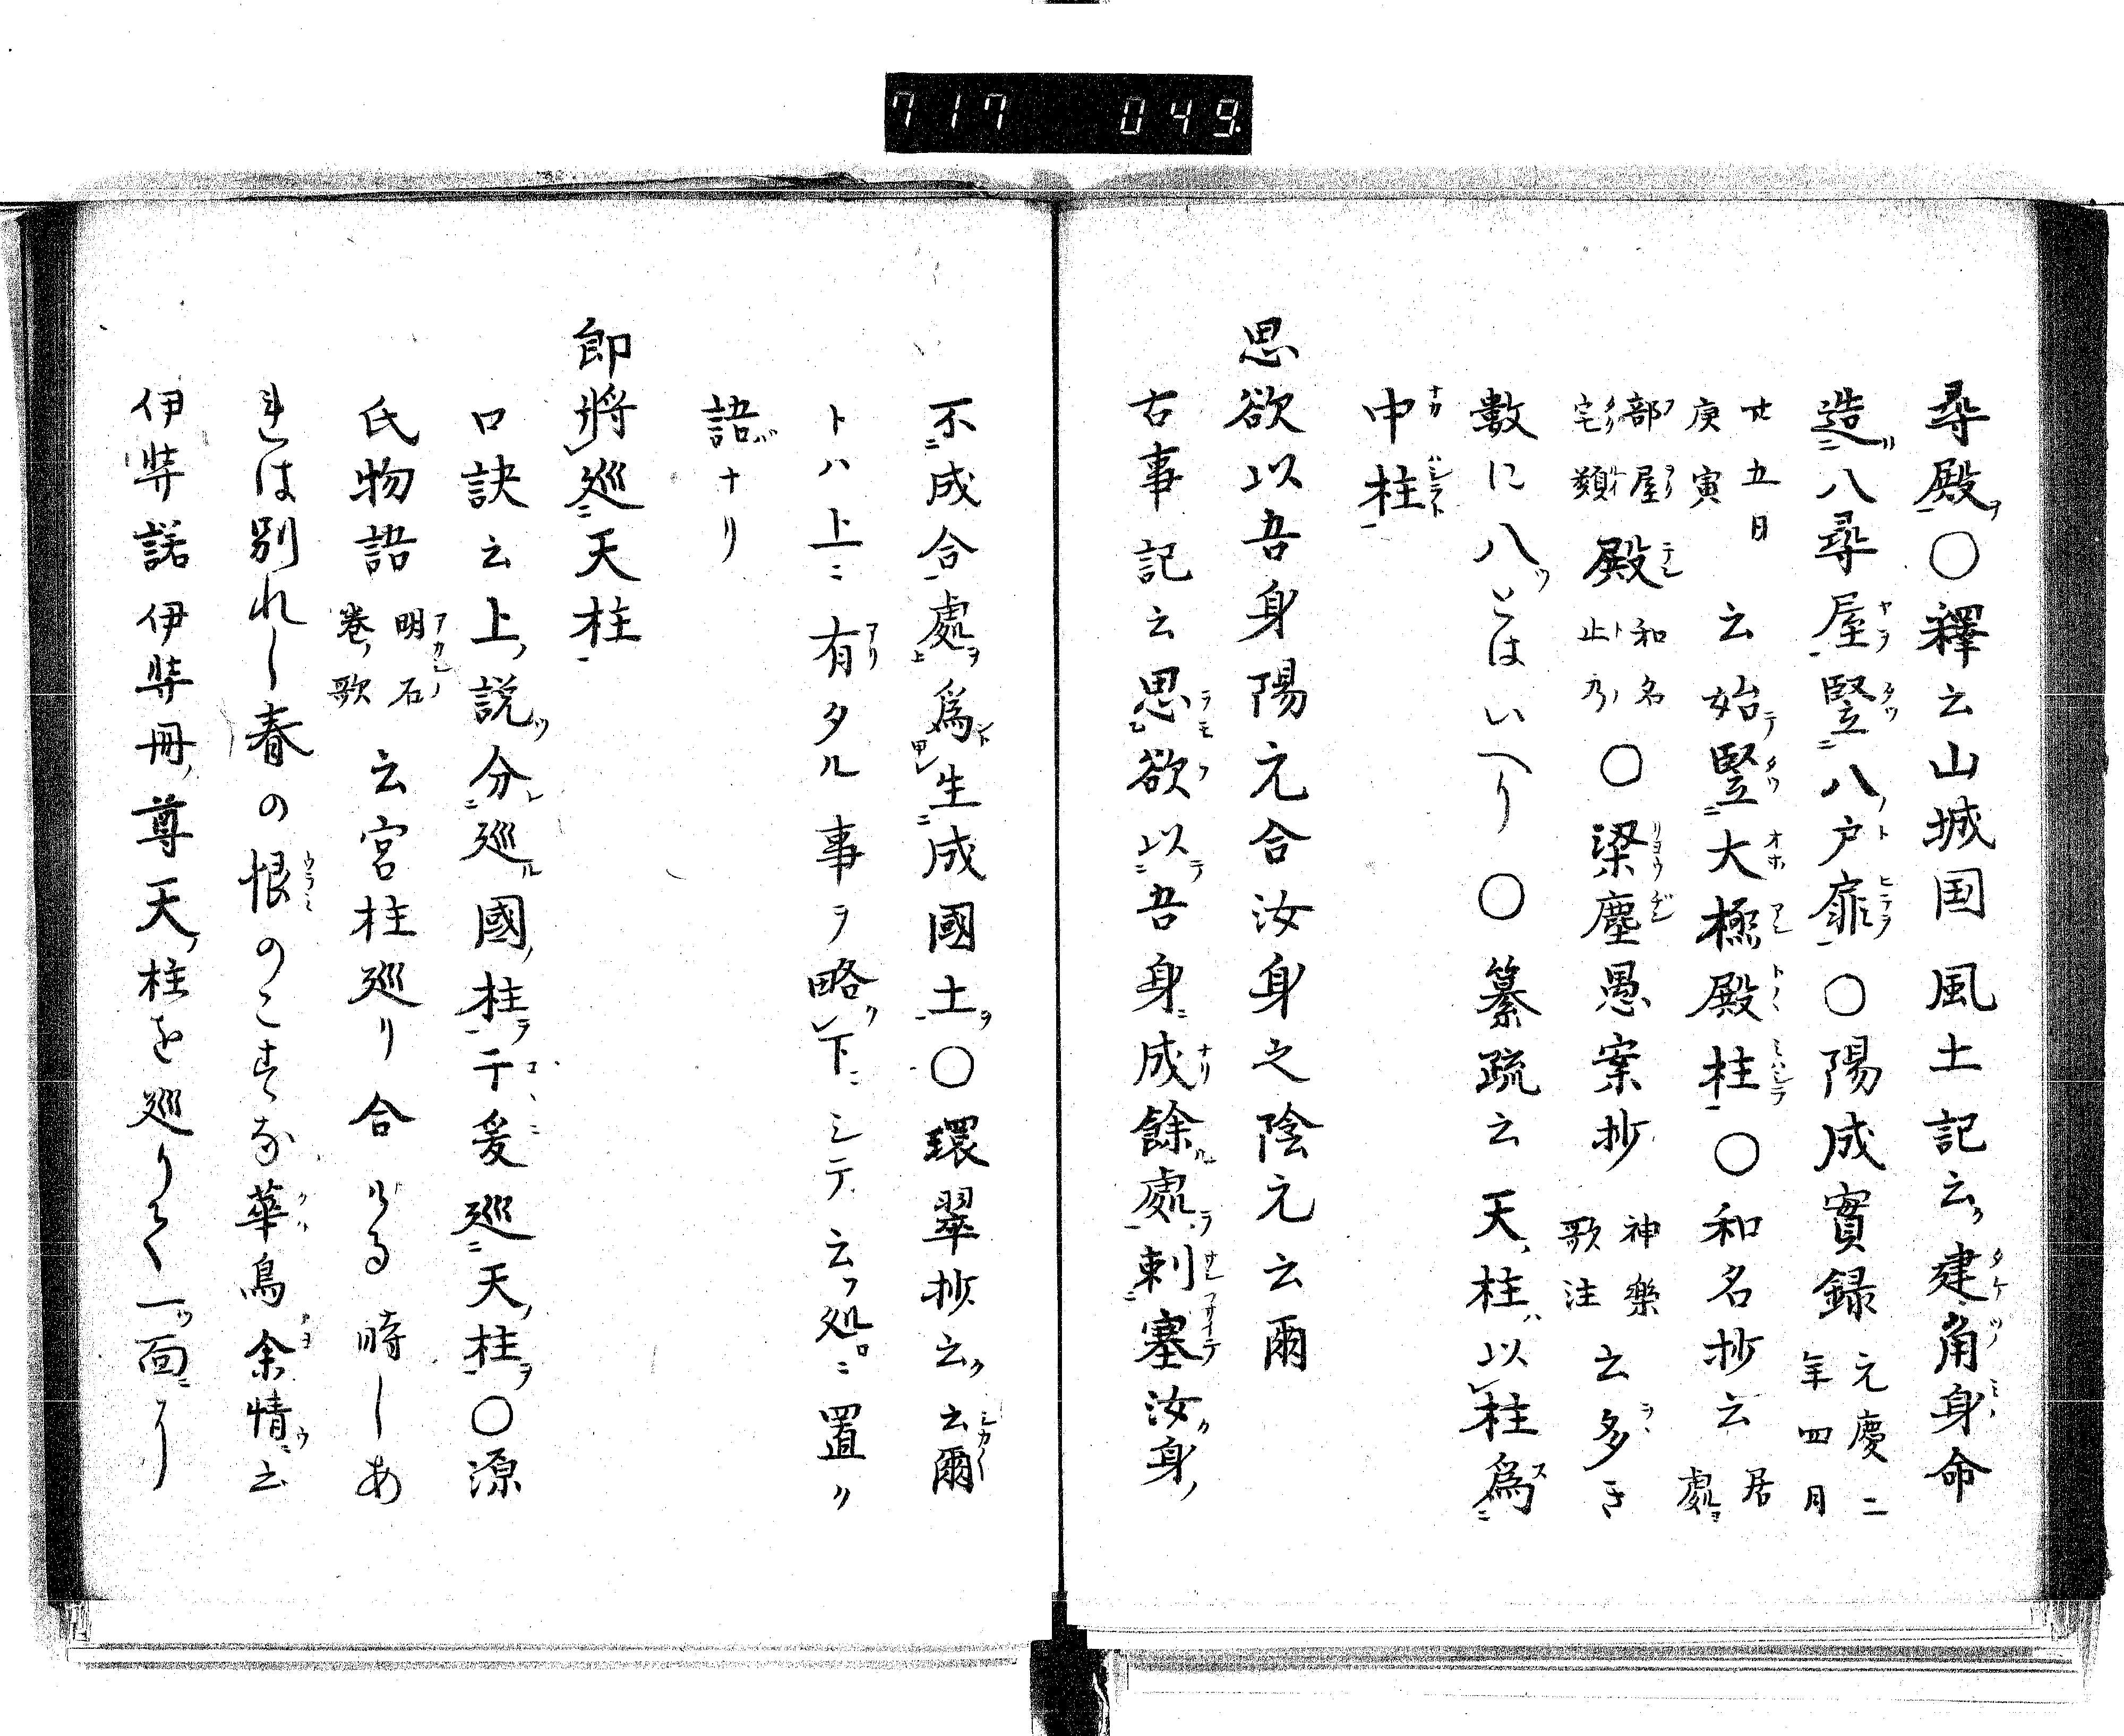 717 049
尋殿〇釋云山城国風土記云建角身命
造八尋屋竪八戸扉〇陽成實録元慶二年四月
廿五日庚寅云始竪大極殿柱〇和名抄云居處
部屋宅類殿和名止乃〇梁塵愚案抄神樂歌注云多き
數に八とはいへり〇纂疏云天柱以柱爲
中柱
思欲以吾身陽元合汝身之陰元云爾
古事記云思欲以吾身成餘處刺塞汝身
不成合處爲生成國土〇環翠抄云云爾
トハ上ニ有タル事ヲ略下ニシテ云処ニ置ク
語ナリ
即將巡天柱
口訣云上説分巡國柱于爰巡天柱〇源
氏物語明石巻歌云宮柱巡り合ける時しあ
れは別れし春の恨のこすな華鳥余情云
伊弉諾伊弉冊尊天柱を巡りて一面り